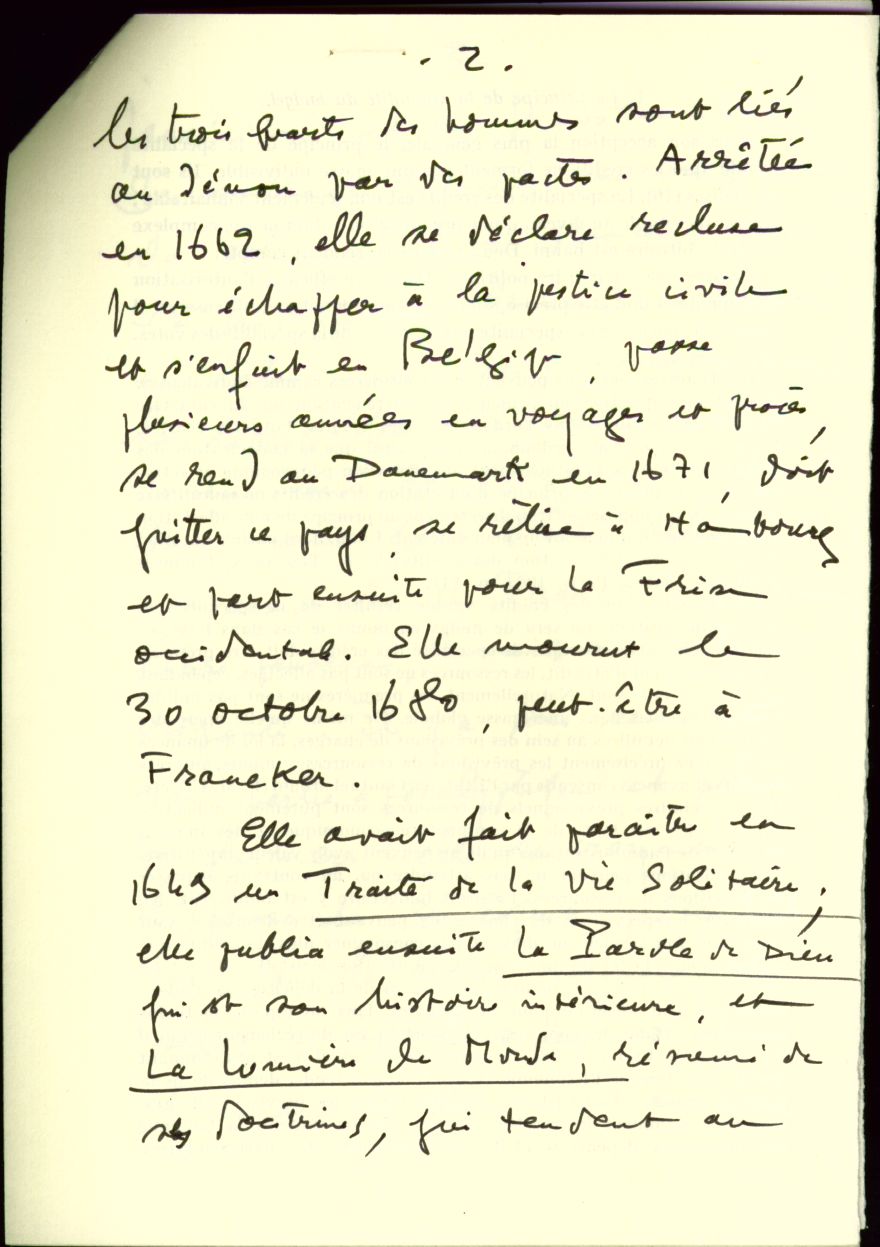 - 2 .
les trois quarts des hommes sont liés
au démon par des pactes. Arrêtée
en 1662, elle se déclare recluse
pour échapper à la justice civile
et s'enfuit en Belgique, passe
plusieurs années en voyages et procès,
se rend au Danemark en 1671, doit
quitter ce pays, se retire à Hambourg
et part ensuite pour la Frise
occidentale. Elle mourut le
30 octobre 1680, peut-être à
Franeker.
Elle avait fait paraître en
1649 un Traité de la Vie Solitaire,
elle publia ensuite la Parole de Dieu
qui est son histoire intérieure, et
La Lumière du Monde, résumé de
ses doctrines, qui tendent au